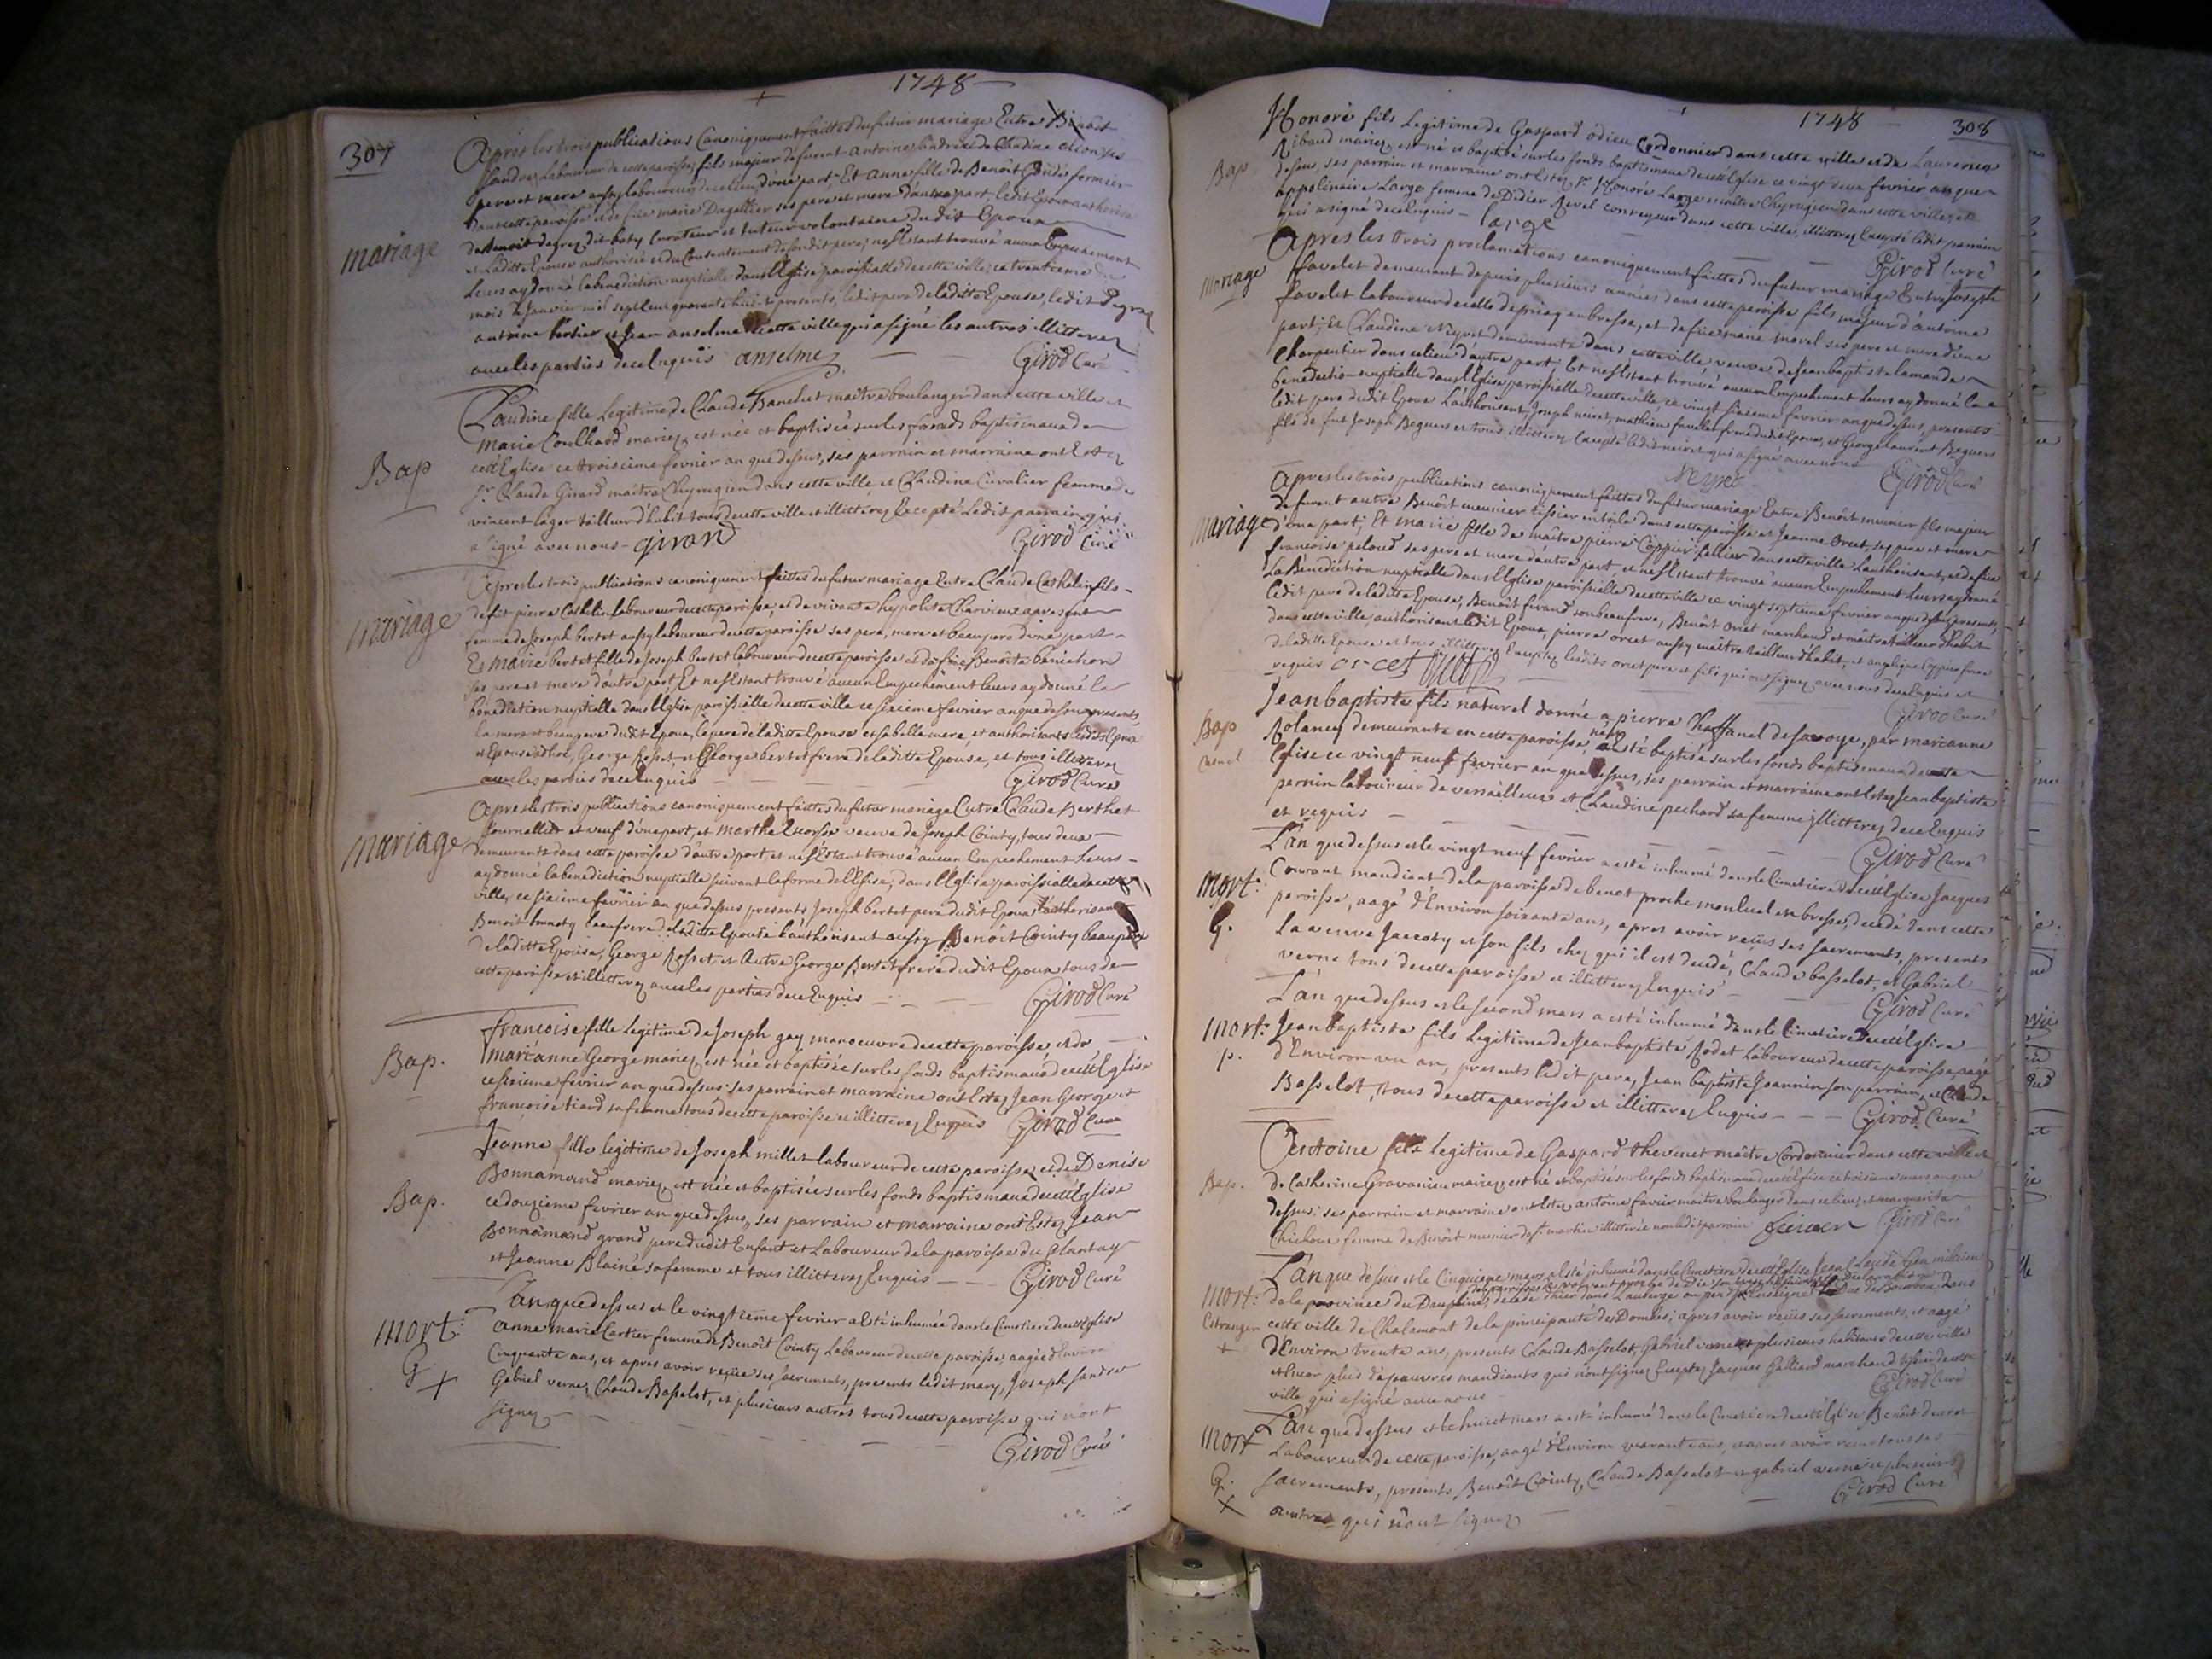 1748
307
mariage
Apres les trois publications Canoniquement faittes du futur mariage Entre Benoit
Sandre Laboureur de cette paroisse, fils majeur defunt Antoine Sandre et de Claudine
pere et mere aussy laboureurs de ce lieu d'une part, Et Anne fille de Benoît fermier
dans cette paroisse et de fue marie Dagallier ses pere et mere d'autre part, ledit Epoux authorisé
de Benoit degrez dit boty Curateur et tuteur volontaire dudit Epoux
et Laditte Epouse authorisée et du Consentement de sondit pere; ne s'Estant trouvé aucun Empechement
Leurs ay donné la benediction nuptialle dans l'Eglise paroissialle de cette ville, ce trentieme du
mois de Janvier mil sept cent quarante huit presents, ledit pere de laditte Epouse, ledit Degrez
antoine bertier et Jean anselme de cette ville qui a signé les autres illitterez
avec les parties de ce Enquis anselme Girod Curé
Bap
Claudine fille Legitime de Claude Banchet maitre boulanger dans cette ville et
Marie Coulhard mariez, est née et baptisée sur les fonds baptismaux de
cette Eglise ce troisieme fevrier an que dessus, ses parrain et marraine ont Esté
Sr. Claude Girard maitre Chyrurgien dans cette ville, et Claudine Cuvalier femme de
vincent Lager tailleur d'habit tous de cette ville et illitterez Excepté Ledit parrain qui
a signé avec nous - girard Girod Curé
mariage
Apres les trois publications canoniquement faittes du futur mariage Entre Claude Cathelin fils
de fut pierre Cathelin laboureur de cette paroisse, et de vivante hypolite Charvieux apresent
femme de Joseph bertet aussy laboureur de cette paroisse ses pere, mere et beaupere d'une part
Et Marie bertet fille de Joseph bertet laboureur de cette paroisse et de fue Benoite benichon
ses pere et mere d'autre part, Et ne s'Estant trouvé aucun Empechement leurs ay donné la
benediction nuptialle dans l'Eglise paroissialle de cette ville ce sixieme fevrier an que dessus presents
la mere et beaupere dudit Epoux, le pere de laditte Epouse et sa belle mere, et authorisants lesdits Epoux
et Epouse, George Rosset, et George bertet frere de laditte Epouse, et tous illitterez
avec les parties de ce Enquis Girod Curé
mariage
Apres les trois publications canoniquement faittes du futur mariage Entre Claude Berthet
Journallier et veuf d'une part, et marthe Escorsse veuve de Joseph Cointy, tous deux
demeurants dans cette paroisse d'autre part, et ne s'Estant trouvé aucun Empechement Leurs
ay donné la benediction nuptialle suivant la forme de l'Eglise, dans l'Eglise paroissialle de cette
ville, ce sixieme fevrier an que dessus presents Joseph bertet pere dudit Epoux l'authorisant
Benoit beaufrere de laditte Epouse l'authorisant aussy, Benoît Cointy beaupere
de laditte Epouse, George Rosset, et Autre George Bertet frere dudit Epoux tous de
cette paroisse et illitterez avec les parties de ce Enquis Girod Curé
Bap.
francoise fille Legitime de Joseph gay manoeuvre de cette paroisse et de
marianne George mariez, est née et baptisée sur les fonds baptismaux de cette Eglise
ce sixieme fevrier an que dessus: ses parrain et marraine ont Estez Jean George et
francoise tiard sa femme tous de cette paroisse et illitterez Enquis Girod Curé
Bap.
Jeanne fille legitime de Joseph millet laboureur de cette paroisse, et de Denise
Bonnamand mariez, est née et baptisée sur les fonds baptismaux de cette Eglise
ce douzieme fevrier an que dessus, ses parrain et marraine ont Estez Jean
Bonnamand grand pere dudit Enfant et Laboureur de la paroisse du plantay
et Jeanne Blaine sa femme et tous illitterez Enquis Girod Curé
mort.
G
+
L'an que dessus et le vingtieme fevrier a Esté inhumée dans le Cimetiere de cette Eglise
anne marie Cartier femme de Benoît Cointy Laboureur de cette paroisse, aagée d'Environ
Cinquante ans, et apres avoir reçüe ses sacrements, presents ledit mary, Joseph Sandre
Gabriel verne, Claude Basselot, et plusieurs autres tous de cette paroisse qui n'ont
signez Girod Curé
1748
308
Bap
Honoré fils Legitime de Gaspard odieu Cordonnier dans cette ville et de Laurence
Ribaud mariez est né et baptisé sur les fonds baptismaux de cette Eglise ce vingt deux fevrier an que
dessus, ses parrain et marraine ont Estez Sr. Honoré Large maitre Chyrurgien dans cette ville, et
appolinaire Large femme de Didier Revel convoyeur dans cette ville, illitterez Excepté ledit parrain
qui a signé de ce Enquis - large Girod Curé
mariage
Apres les trois proclamations canoniquement faittes du futur mariage Entre Joseph
favelet demeurant depuis plusieurs années dans cette paroisse fils majeur d'antoine
favelet laboureur de celle de priay en bresse, et de fue marie morel ses pere et mere d'une
part; Et Claudine Neyret demeurante dans cette ville, veuve de Jean baptiste lamande
Charpentier dans ce lieu d'autre part; Et ne s'Estant trouvé aucun Empechement Leurs ay donné la
benediction nuptialle dans l'Eglise paroissialle de cette ville ce vingt sixieme fevrier an que dessus, presents
ledit pere dudit Epoux L'authorisant, Joseph neiret, mathieu favelet frere dudit Epoux, et George laurent Beguere
fils de fut Joseph Beguere et tous illitterez Excepté ledit neiret qui a signé avec nous
Neyret Girod Curé
mariage
Apres les trois publications canoniquement faittes du futur mariage Entre Benoît munier fils majeur
de furent autre Benoît meunier tissier en toile dans cette paroisse et Jeanne Orcet, ses pere et mere
d'une part; Et marie fille de maître pierre Coppier sellier dans cette ville L'authorisant, et de fue
francoise peloud ses pere et mere d'autre part et ne s'Estant trouvé aucun Empechement Leurs ay donné
La Benediction nuptialle dans l'Eglise paroissialle de cette ville ce vingt septieme fevrier an que dessus, presents,
ledit pere de laditte Epouse, Benoît ferand son beaufrere, Benoît Orcet marchand et maitre tailleur d'habit
dans cette ville, authorisant ledit Epoux, pierre orcet aussy maitre tailleur d'habit, et angelique Coppier sœur
de laditte Epouse et tous illitterez Exceptez lesdits orcet pere et fils qui ont signez avec nous de ce Enquis et
requis orcet Orcet Girod Curé
Bap
Jean baptiste fils naturel donné a pierre Chaffanel de savoye, par marianne
Rolancy demeurante en cette paroisse, né et a esté baptisé sur les fonds baptismaux de cette
Eglise ce vingt neuf fevrier an que dessus, ses parrain et marraine ont Estez Jean baptiste
pernin laboureur de versailleux et Claudine pechard sa femme illitterez de ce Enquis
et requis Girod Curé
mort.
G.
L'an que dessus et le vingt neuf fevrier a esté inhumé dans le Cimetiere de cette Eglise Jacques
Couvant mandiant de la paroisse de benot proche monluel en bresse, decedé dans cette
paroisse, aagé d'Environ soixante ans, apres avoir reçüs ses sacrements, presents
La veuve Jaccoty et son fils chez qui il est decedé, Claude basselot, et Gabriel
verne tous de cette paroisse et illitterez Enquis Girod Curé
mort.
p.
L'an que dessus et le second mars a esté inhumé dans le Cimetiere de cette Eglise
Jean baptiste fils Legitime de Jean baptiste Rodet Laboureur de cette paroisse, aagé
d'Environ un an, presents ledit pere, Jean baptiste Joannin son parrain, et Claude
Basselot, tous de cette paroisse et illitterez Enquis Girod Curé
Bap.
Antoine fils legitime de Gaspard thevenet maître Cordonnier dans cette ville et
de Catherine Gravanieu mariez est né et baptisé sur les fonds baptismaux de cette Eglise ce troisieme mars an que
dessus: ses parrain et marraine ont Estez antoine favier maitre boulanger dans ce lieu, et marguerite
Chichoux femme de Benoît munier de st. martin illitterée non ledit parrain Girod Curé
mort.
Estranger
+
L'an que dessus et le Cinquieme mars a Esté inhumé dans le Cimetiere de cette Eglise Jean Claude
de la province du Dauphiné, decedé d'hier dans l'auberge ou pend pour Enseigne le Duc de Bourbon dans
cette ville de Chalamont de la principauté des Dombes; apres avoir reçüs ses sacrements, et aagé
d'Environ trente ans, presents Claude Basselot, Gabriel verne et plusieurs habitants de cette ville
et Encor plus de pauvres mandiants qui n'ont signez Exceptez Jacques Galliard marchand tissier de cette
ville qui a signé avec nous Girod Curé
mort
G.
+
L'an que dessus et le huict mars a esté inhumé dans le Cimetiere de cette Eglise Benoît
Laboureur de cette paroisse, aagé d'Environ quarante ans, apres avoir reçu tous ses
sacrements, presents Benoît Cointy, Claude Basselot et gabriel verne et plusieurs
autres qui n'ont signez Girod Curé